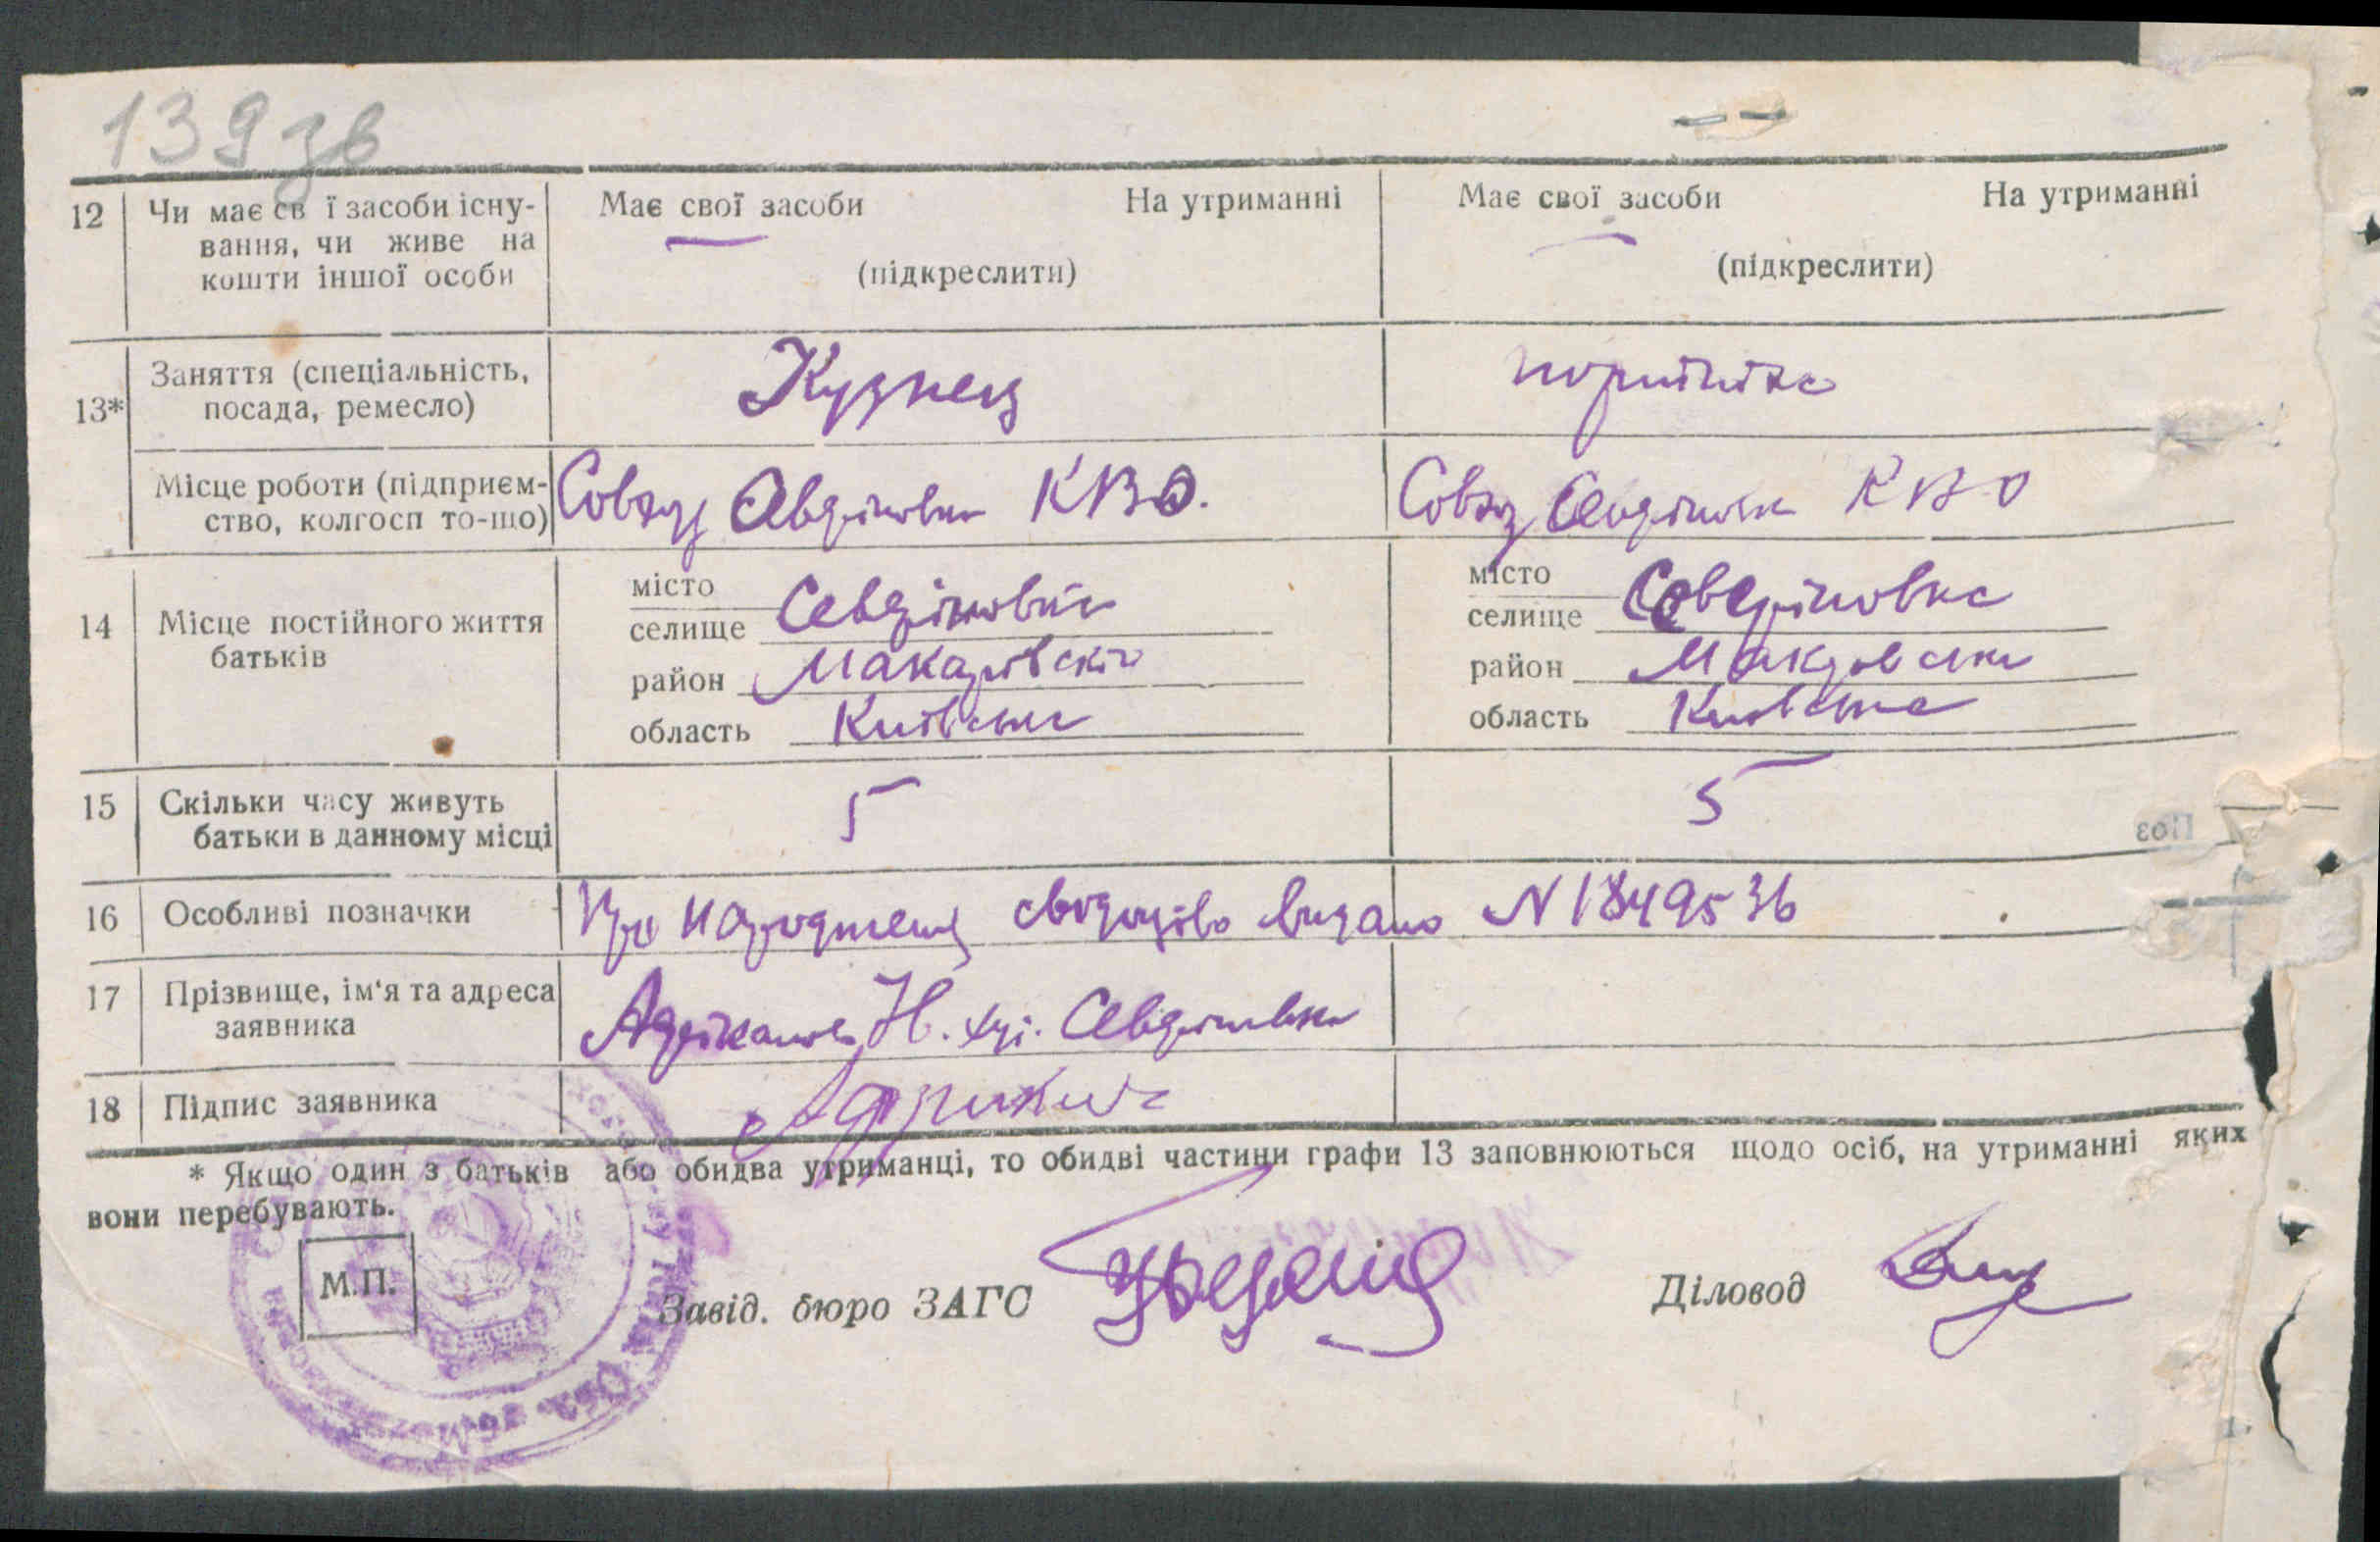 139 зв
12 Чи має св ї засоби існу- Має свої засоби На утриманні Має свої засоби На утриманні
вання, чи живе на
кошти іншої особи (підкреслити) (підкреслити)
13* Заняття (спеціальність, Кузнец
посада, ремесло)
Місце роботи (підприєм- Совхоз КВО. Совхоз КВО
ство, колгосп то-що)
14 Місце постійного життя батьків
місто місто
селище Севдріновка селище Севдріновка
район Макарівског район Макаровски
область Київська область Київська
15 Скільки часу живуть 5 5
батьки в данному місці
16 Особливі позначки Про народження свідоцтво видано N 1849536
17 Прізвище, ім'я та адреса
заявника Н. Севдріновка
18 Підпис заявника
* Якщо один з батьків або обидва утриманці, то обидві частини графи 13 заповнюються щодо осіб, на утриманні яких
вони перебувають.
М.П.
Завід. бюро ЗАГС Діловод